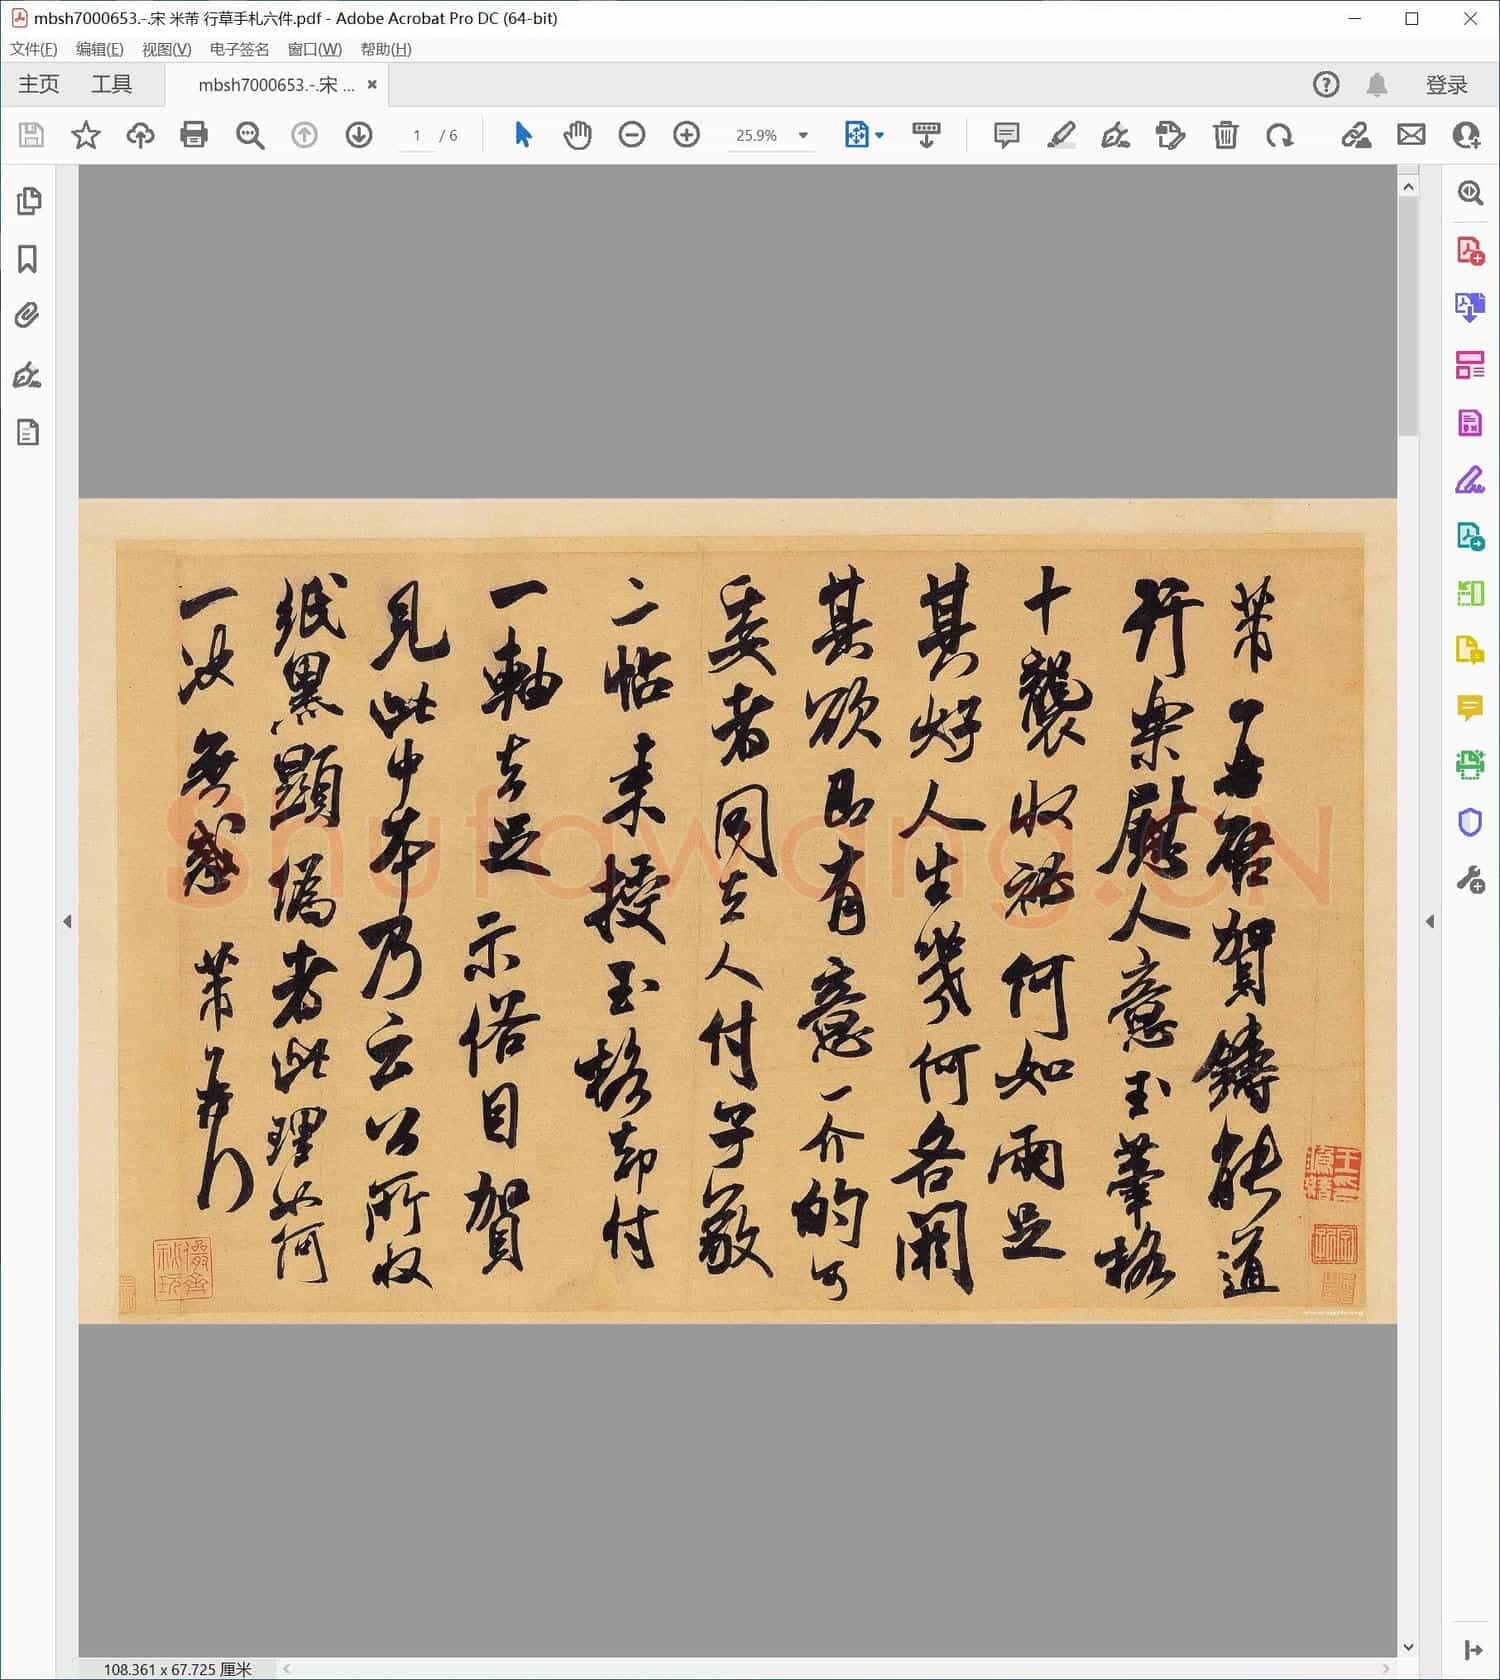 mbsh7000653.-.宋 米芾 行草手札六件.pdf - Adobe Acrobat Pro DC (64-bit)
文件(F) 编辑(E) 视图(V) 电子签名 窗口(W) 帮助(H)
主页 工具 mbsh7000653.-.宋 ... 登录
1 / 6 25.9%
芾再啓賀鑄能道
行樂慰人意玉華格
十襲收祕何如雨足
其好人生幾何各閼
其欲即有意一介的可
委者同去人付子敬
二帖来授玉格却付
一軸去足示俗目賀
見此中本乃云公所收
紙黑顯偽者此理如何
一决無惑芾再拜
Shufawang.CN
108.361 x 67.725 厘米